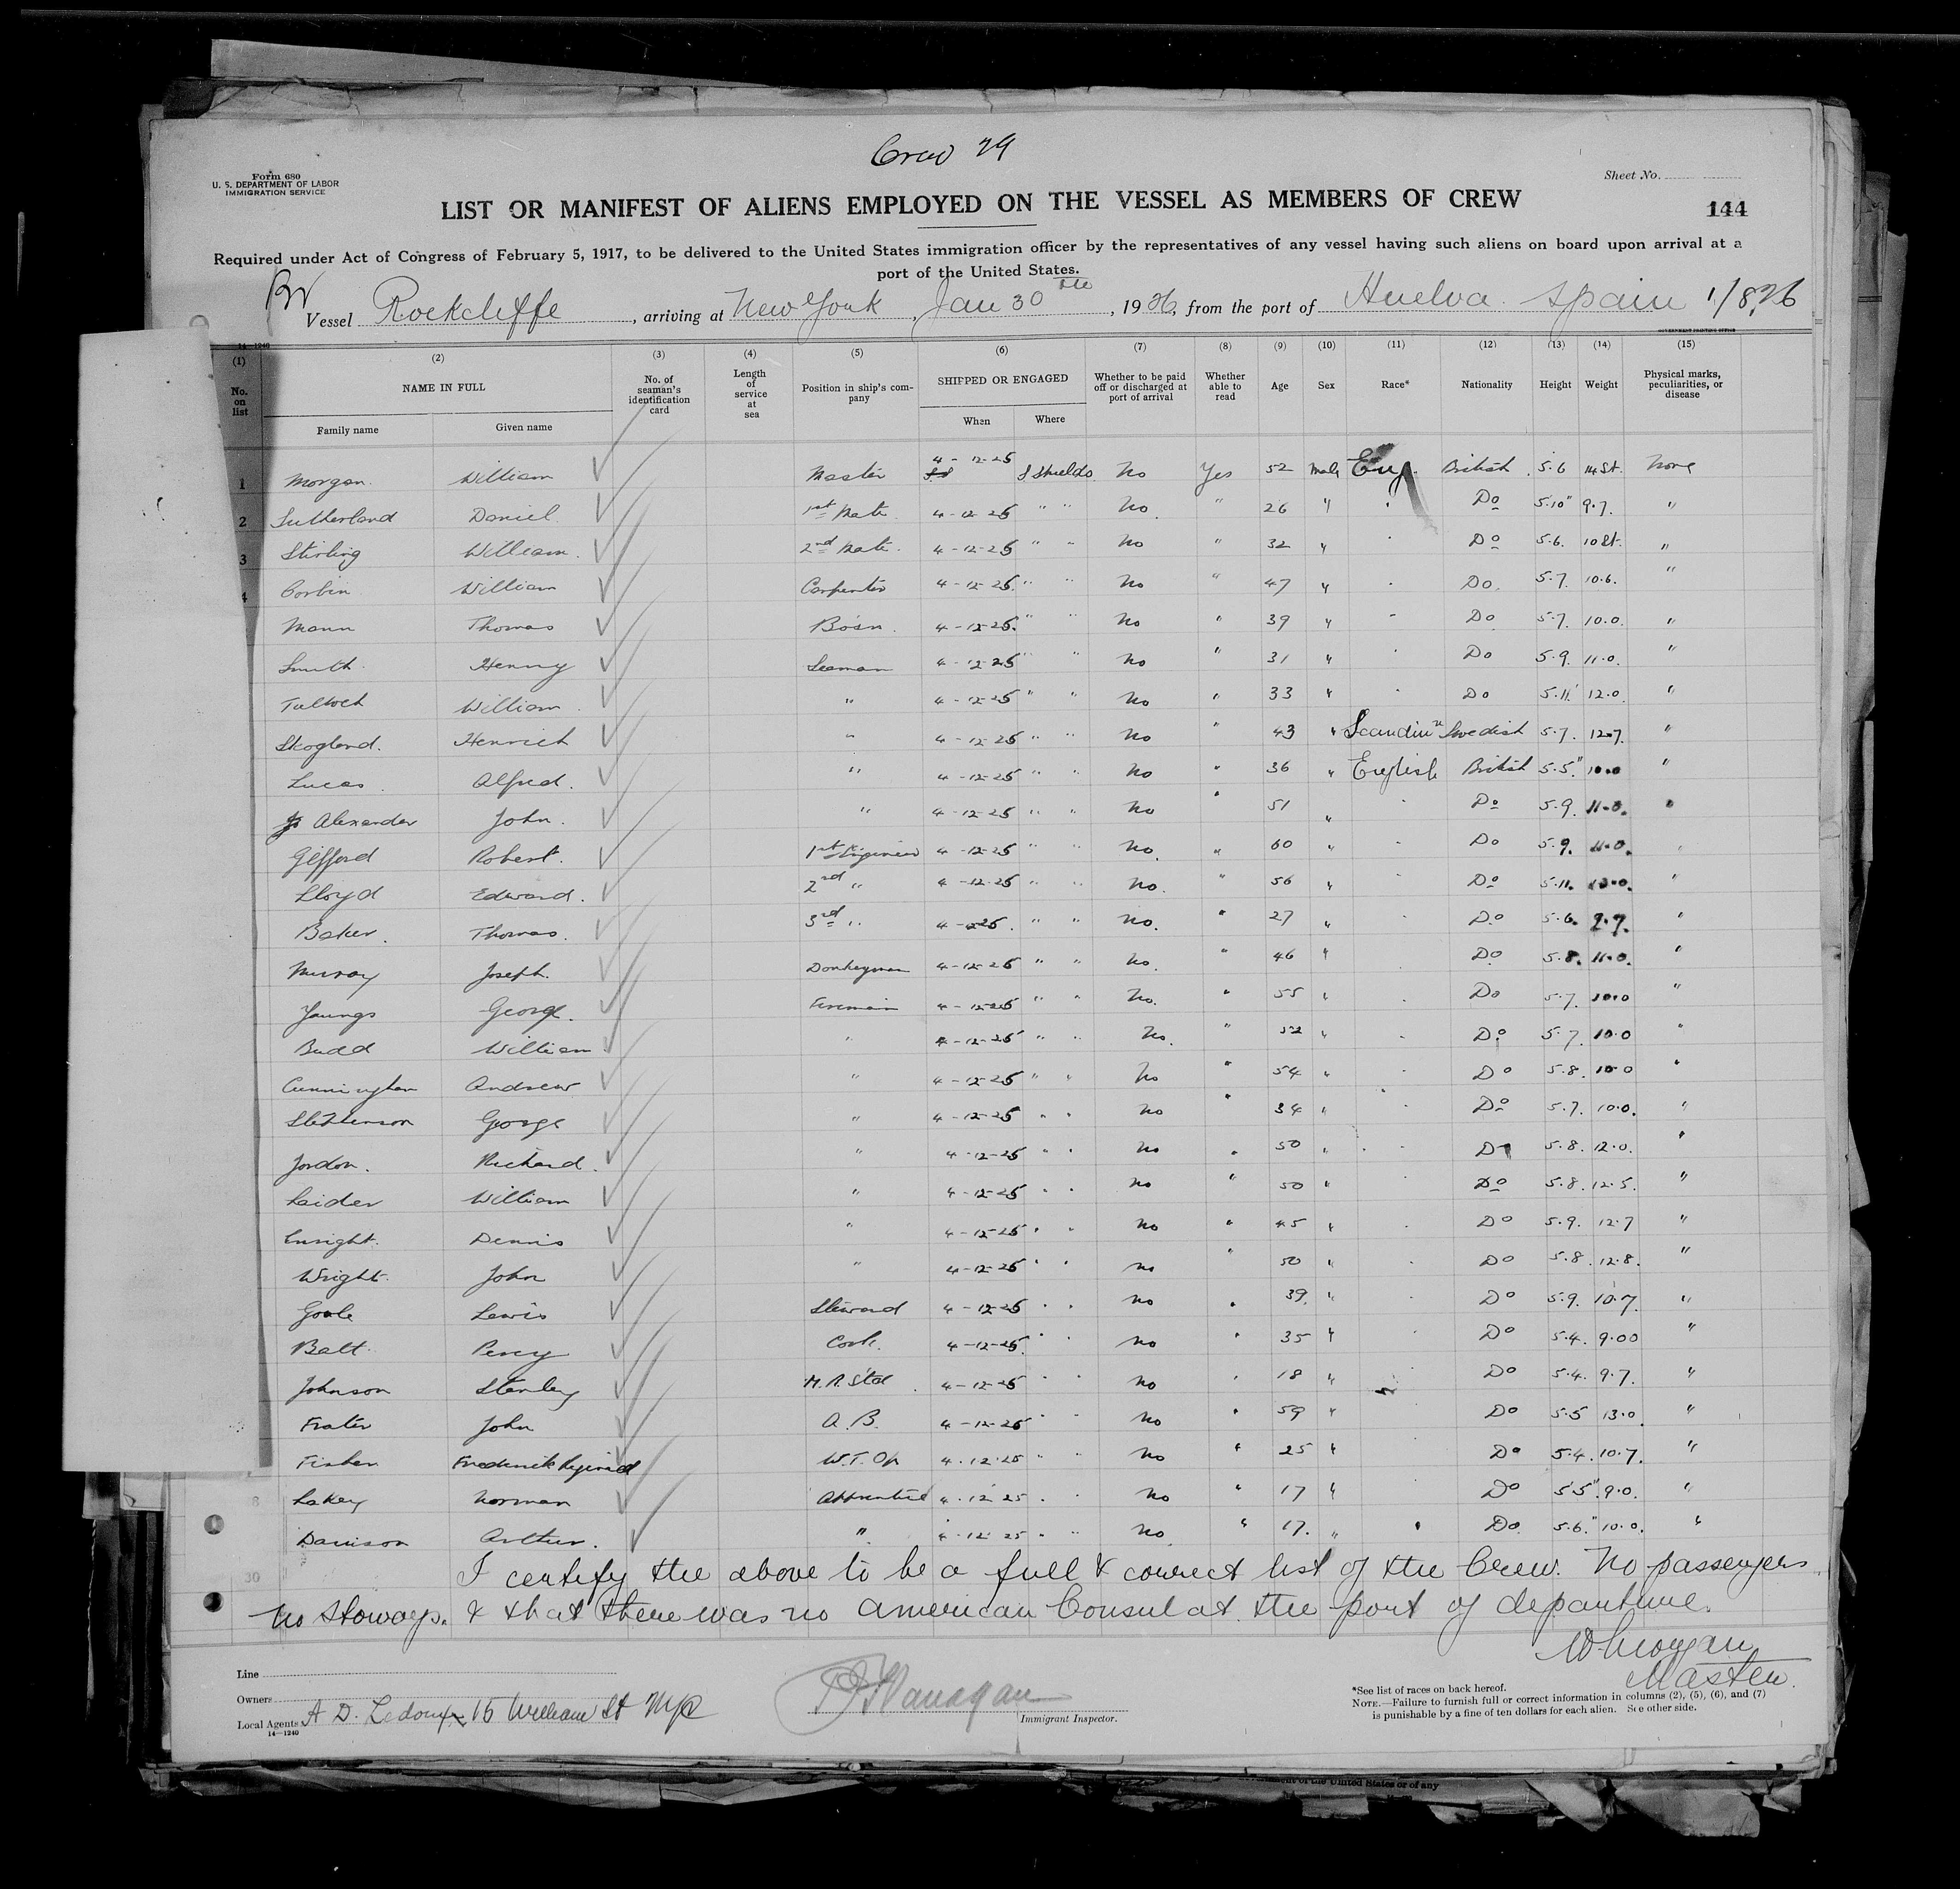 Crew 29
Form 680
U. S. DEPARTMENT OF LABOR
IMMIGRATION SERVICE
Sheet No.
LIST OR MANIFEST OF ALIENS EMPLOYED ON THE VESSEL AS MEMBERS OF CREW
144
Required under Act of Congress of February 5, 1917, to be delivered to the United States immigration officer by the representatives of any vessel having such aliens on board upon arrival at a
port of the United States.
Br
Vessel Rockcliffe, arriving at New York, Jan 30th, 1926, from the port of Huelva. Spain 1/8/26
14—1240 GOVERNMENT PRINTING OFFICE
(1) (2) (3) (4) (5) (6) (7) (8) (9) (10) (11) (12) (13) (14) (15)
No. on list NAME IN FULL No. of seaman's identification card Length of service at sea Position in ship's company SHIPPED OR ENGAGED Whether to be paid off or discharged at port of arrival Whether able to read Age Sex Race* Nationality Height Weight Physical marks, peculiarities, or disease
Family name Given name When Where
1 Morgan William Master 4-12-25 S Shields No Yes 52 Male Eng. British 5.6 14 St. None
2 Sutherland Daniel 1st Mate 4-12-25 " " No " 26 " " Do 5'10" 9.7. "
3 Stirling William. 2nd Mate. 4-12-25 " " No " 32 " " Do 5.6. 10 St. "
4 Corbin William Carpenter 4-12-25 " " No " 47 " " Do. 5.7. 10.6. "
Mann Thomas Bosn. 4-12-25. " " No " 39 " " Do 5.7. 10.0. "
Smith Henry Seaman 4-12-25 " " No " 31 " " Do 5.9. 11.0. "
Tulloch William. " 4-12-25 " " No " 33 " " Do 5.11 12.0. "
Skogland. Henrich " 4-12-25 " " No " 43 " Scandin'n Swedish 5.7. 12.7. "
Lucas. Alfred. " 4-12-25 " " No " 36 " English British 5.5." 10.0 "
Alexander John. " 4-12-25 " " No " 51 " " Do 5.9. 11.0. "
Gifford Robert. 1st Engineer 4-12-25 " " No. " 60 " " Do 5.9. 11.0. "
Lloyd Edward. 2nd " 4-12-25 " " No. " 56 " " Do 5.11. 13.0. "
Baker. Thomas. 3rd " 4-12-25. " " No. " 27 " " Do 5.6. 9.7. "
Murray Joseph. Donkeyman 4-12-25 " " No. " 46 " " Do 5.8. 11.0. "
Youngs George. Fireman 4-12-25 " " No. " 55 " " Do 5.7. 10.0 "
Budd William " 4-12-25 " " No. " 52 " " Do 5.7. 10.0 "
Cunningham Andrew " 4-12-25 " " No " 54 " " Do 5.8. 10.0 "
Stephenson George " 4-12-25 " " No " 34 " " Do 5.7. 10.0. "
Jordon. Richard. " 4-12-25 " " No " 50 " " Do 5.8. 12.0. "
Laider William " 4-12-25 " " No " 50 " " Do 5.8. 12.5. "
Enright. Dennis " 4-12-25 " " No " 45 " " Do 5.9. 12.7 "
Wright. John " 4-12-25 " " No " 50 " " Do 5.8. 12.8. "
Goule Lewis Steward 4-12-25 " " No " 39. " " Do 5.9. 10.7. "
Balt Percy Cook. 4-12-25. " " No " 35 " " Do 5.4. 9.00 "
Johnson Stanley M.R. Std. 4-12-25 " " No " 18 " " Do 5.4. 9.7. "
Frater John A.B. 4-12-25 " " No " 59 " " Do 5.5 13.0. "
Fisher Frederick Reginald W.T. Op 4.12.25 " " No " 25 " Do 5.4. 10.7. "
8 Lakey Norman Apprentice 4.12.25 " " No " 17 " Do 5'5". 9.0. "
Davison Arthur. " 4.12.25 " " No " 17. " " Do. 5.6." 10.0. "
30 I certify the above to be a full & correct list of the Crew. No passengers
No Stoways. & that there was no American Consul at the port of departure.
W Morgan
Master.
Line
Owners
Local Agents A D. Ledoux 15 William St NYC
14—1240
Flanagan
Immigrant Inspector.
*See list of races on back hereof.
NOTE.—Failure to furnish full or correct information in columns (2), (5), (6), and (7)
is punishable by a fine of ten dollars for each alien. See other side.